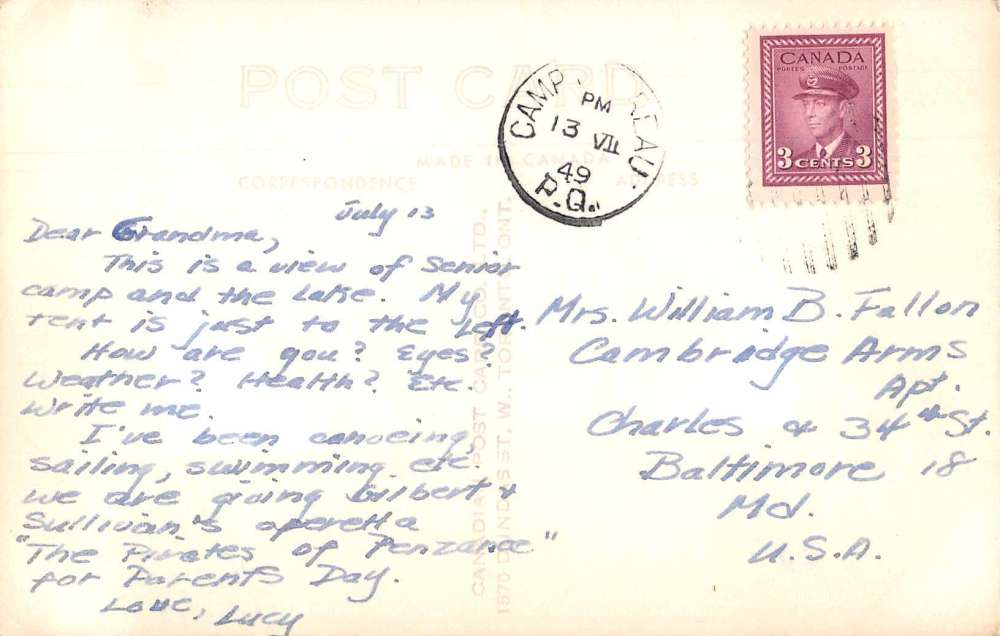 POST CARD
MADE IN CANADA
CORRESPONDENCE
ADDRESS
CANADIAN POST CARD CO. LTD.,
1870 DUNDAS ST. W., TORONTO, ONT.
CAMP
PM
13 VII
49
P.Q.
CANADA
POSTES POSTAGE
3 CENTS 3
July 13
Dear Grandma,
This is a view of Senior
camp and the lake. My
tent is just to the left.
How are you? Eyes?
Weather? Health? Etc.
Write me.
I've been canoeing,
sailing, swimming etc.
We are giving Gilbert &
Sullivan's operetta
"The Pirates of Penzance"
for Parents Day.
Love, Lucy
Mrs. William B. Fallon
Cambridge Arms
Apt.
Charles & 34th St.
Baltimore 18
Md.
U.S.A.